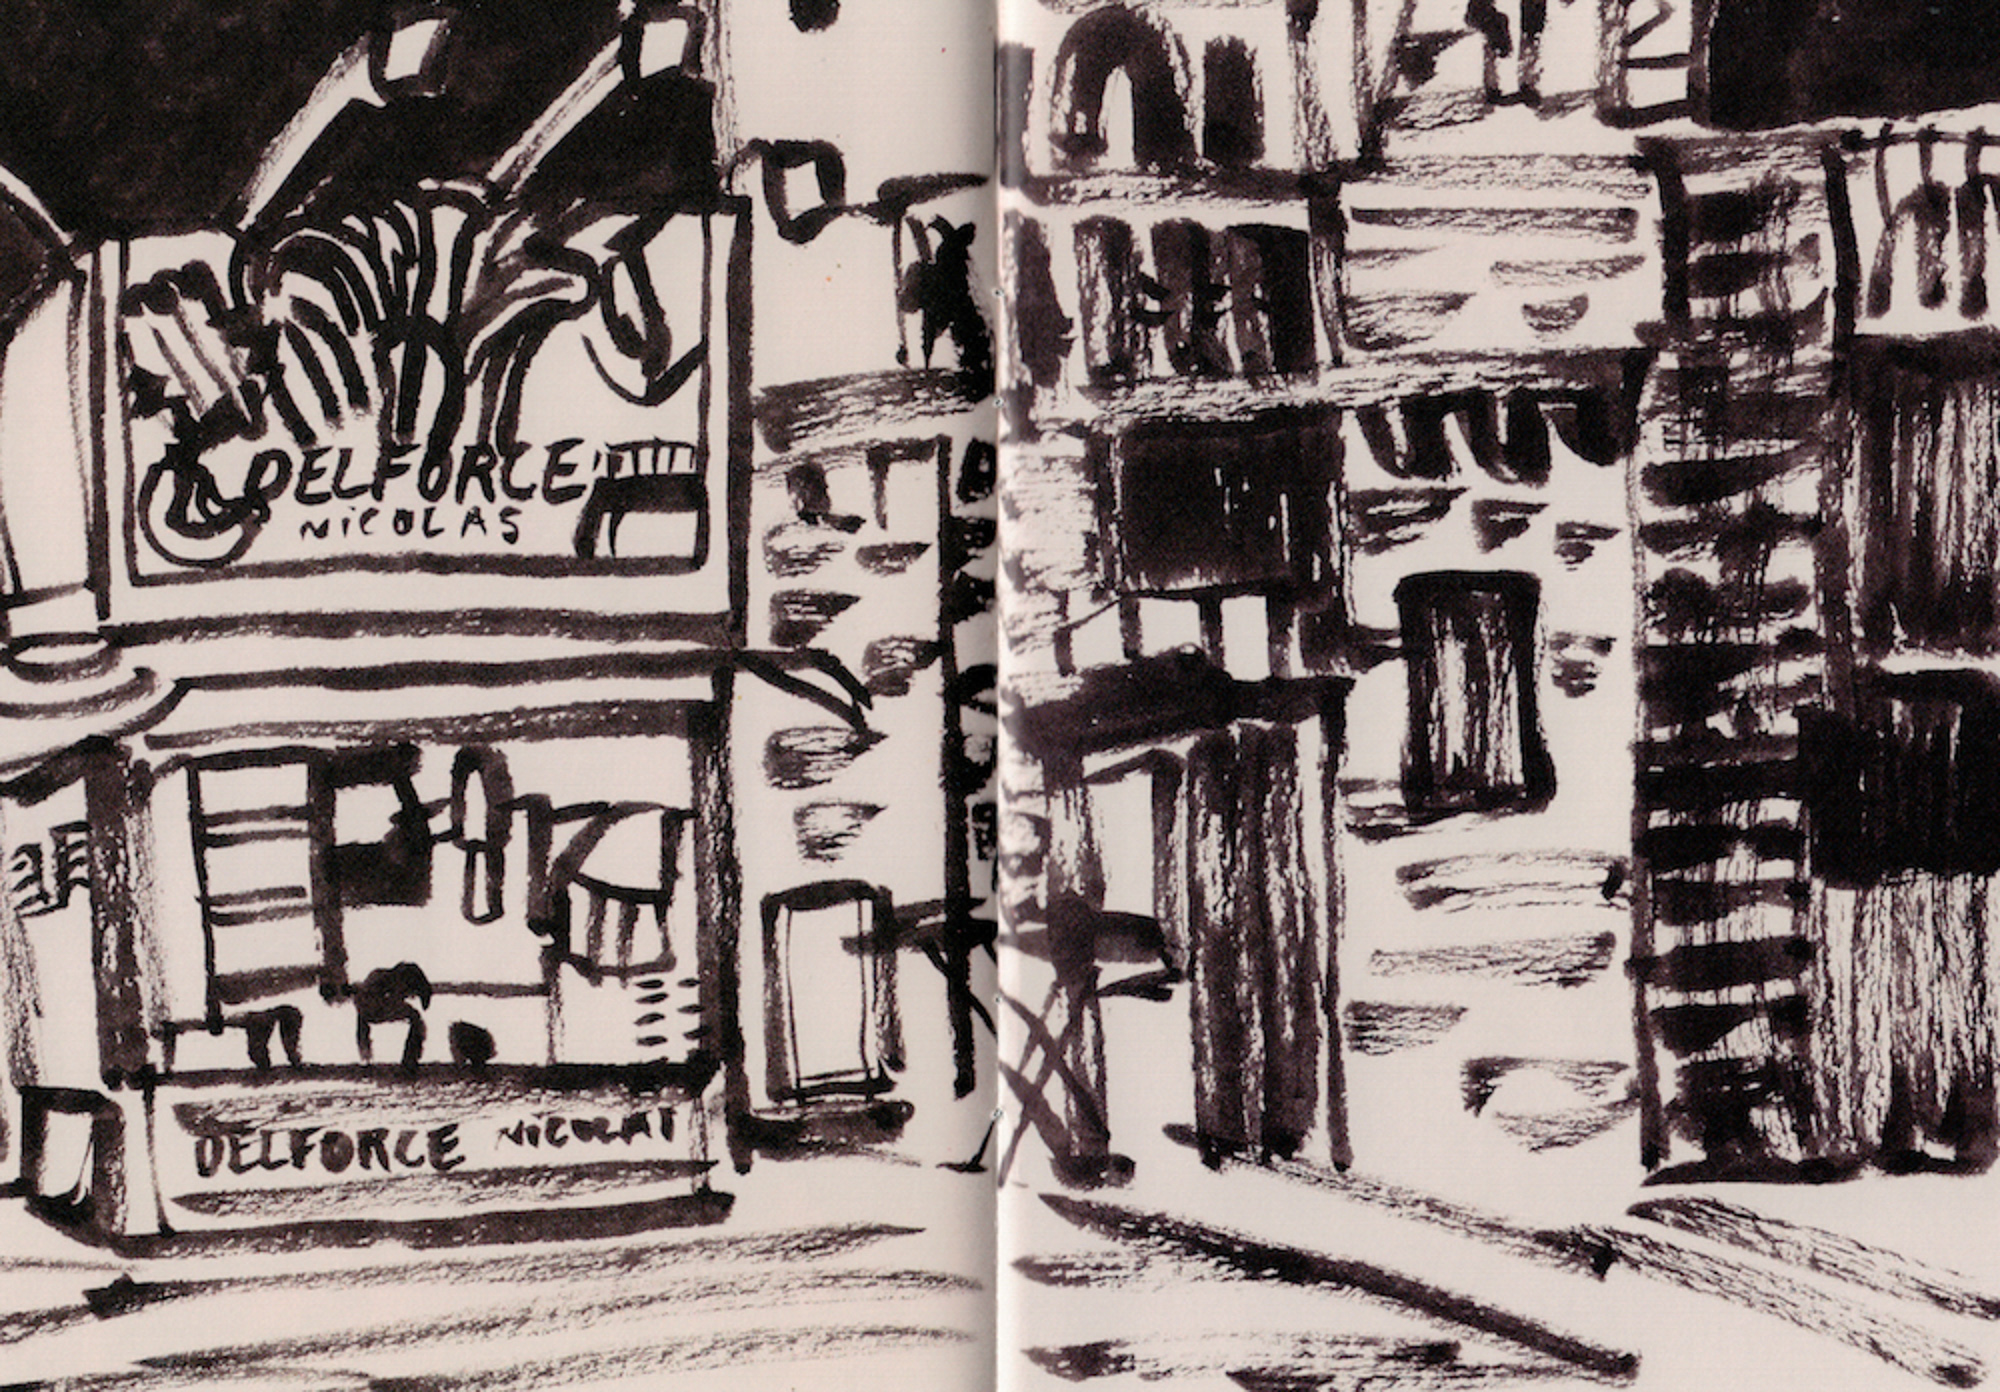 DELFORCE
NICOLAS
DELFORCE NICOLAS